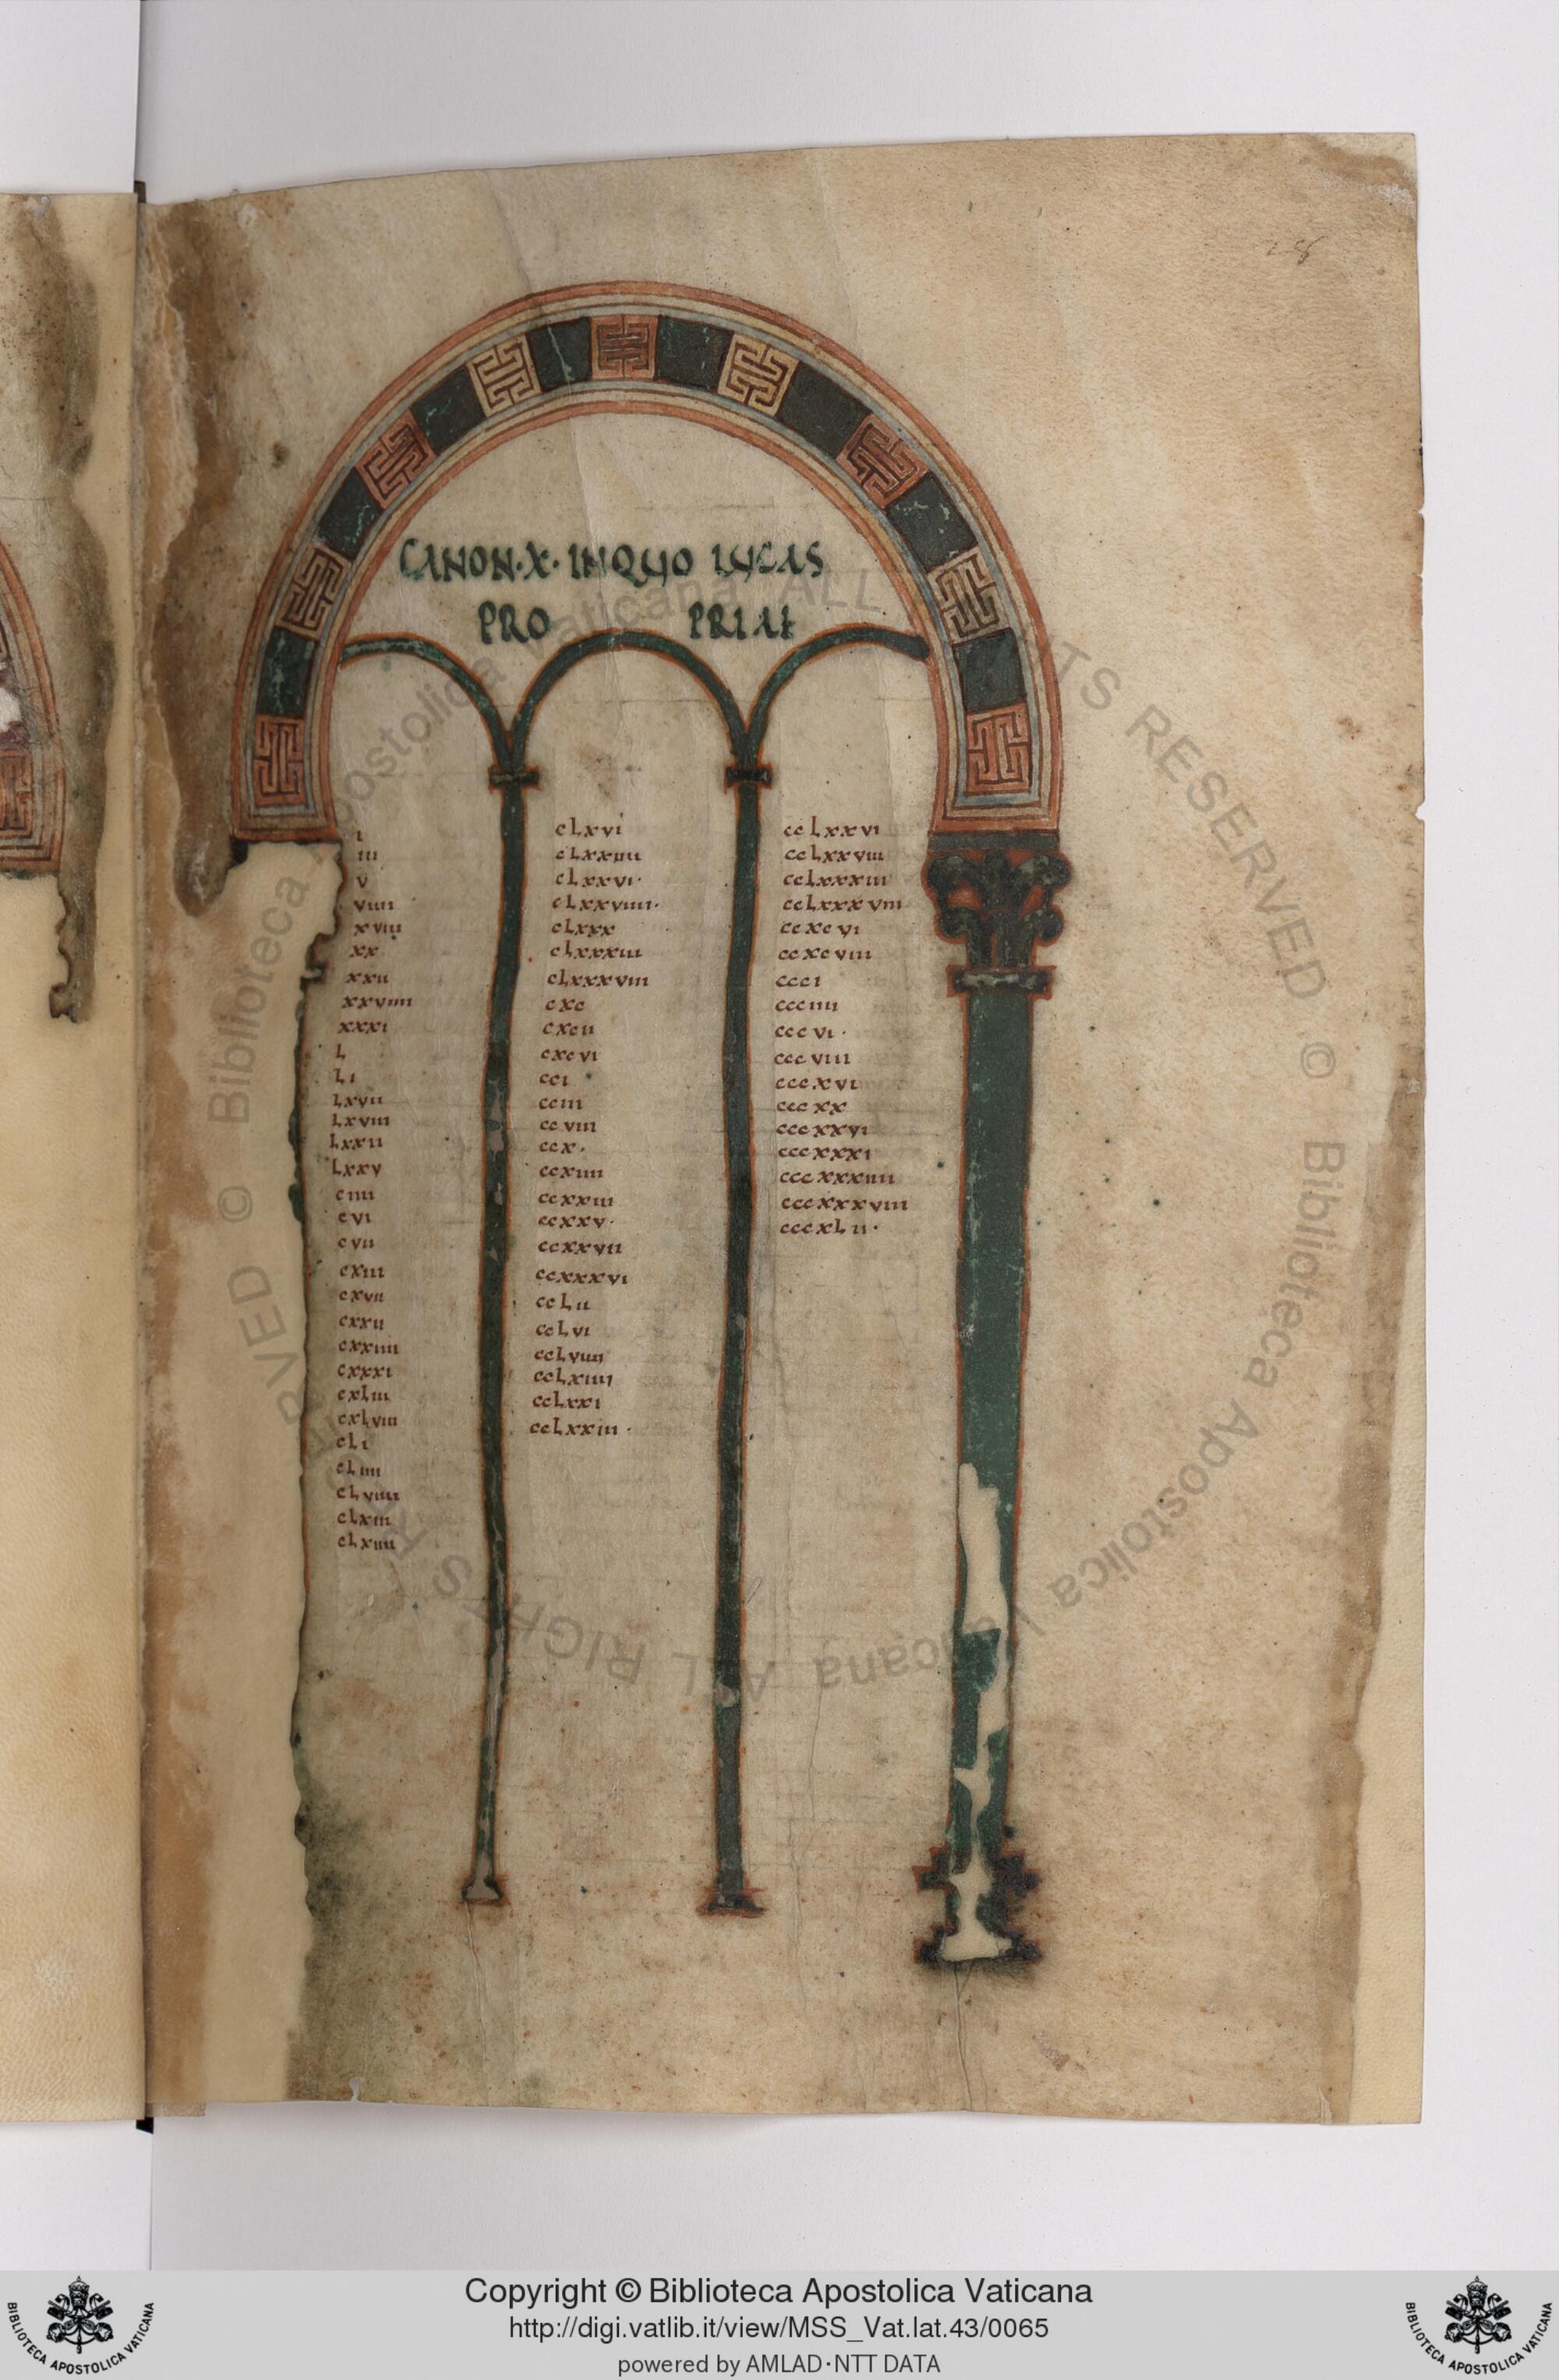 CANON·X· INQUO LUCAS
PRO PRIAE
I
III
V
VIIII
XVIII
XX
XXII
XXVIIII
XXXI
L
LI
LXVII
LXVIII
LXXII
LXXV
CIIII
CVI
CVII
CXIII
CXVII
CXXII
CXXIIII
CXXXI
CXLIII
CXLVIII
CLI
CLIIII
CLVIIII
CLXIII
CLXIIII
CLXVI
CLXXIIII
CLXXVI·
CLXXVIIII·
CLXXX
CLXXXIII
CLXXXVIII
CXC
CXCII
CXCVI
CCI
CCIII
CCVIII
CCX·
CCXIIII
CCXXIII
CCXXV·
CCXXVII
CCXXXVI
CCLII
CCLVI
CCLVIIII
CCLXIIII
CCLXXI
CCLXXIII·
CCLXXVI
CCLXXVIII
CCLXXXIII
CCLXXXVIII
CCXCVI
CCXCVIII
CCCI
CCCIIII
CCCVI·
CCCVIII
CCCXVI
CCCXX
CCCXXVI
CCCXXXI
CCCXXXIIII
CCCXXXVIII
CCCXLII·
Copyright © Biblioteca Apostolica Vaticana
http://digi.vatlib.it/view/MSS_Vat.lat.43/0065
powered by AMLAD·NTT DATA
BIBLIOTECA APOSTOLICA VATICANA
BIBLIOTECA APOSTOLICA VATICANA